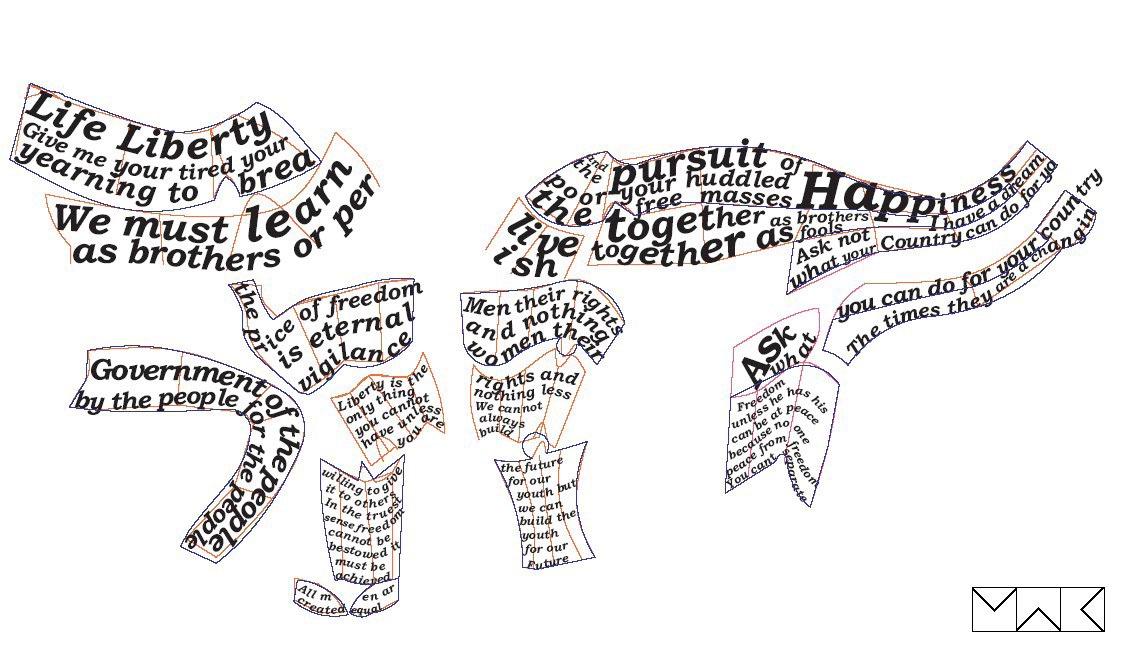 Life Liberty
Give me your tired your
yearning to brea
We must learn
as brothers or per
and
the
po or
the
pursuit of
your huddled
free masses
Happiness
I have a dream
together as brothers
together as fools
Ask not
what your Country can do for yo
live
ish
you can do for your country
The times they are a changin
the price of freedom
is eternal
vigilance
Men their rights
and nothing
women their
rights and
nothing less
We cannot
always
build
the future
for our
youth but
we can
build the
youth
for our
Future
Ask
what
Freedom
unless he has his
can be at peace
because no one
peace from freedom
You cant separate
Government of the people
by the people for the people
Liberty is the
only thing
you cannot
have unless
you are
willing to give
it to others
In the truest
sense freedom
cannot be
bestowed it
must be
achieved
All m en ar
created equal
MWK